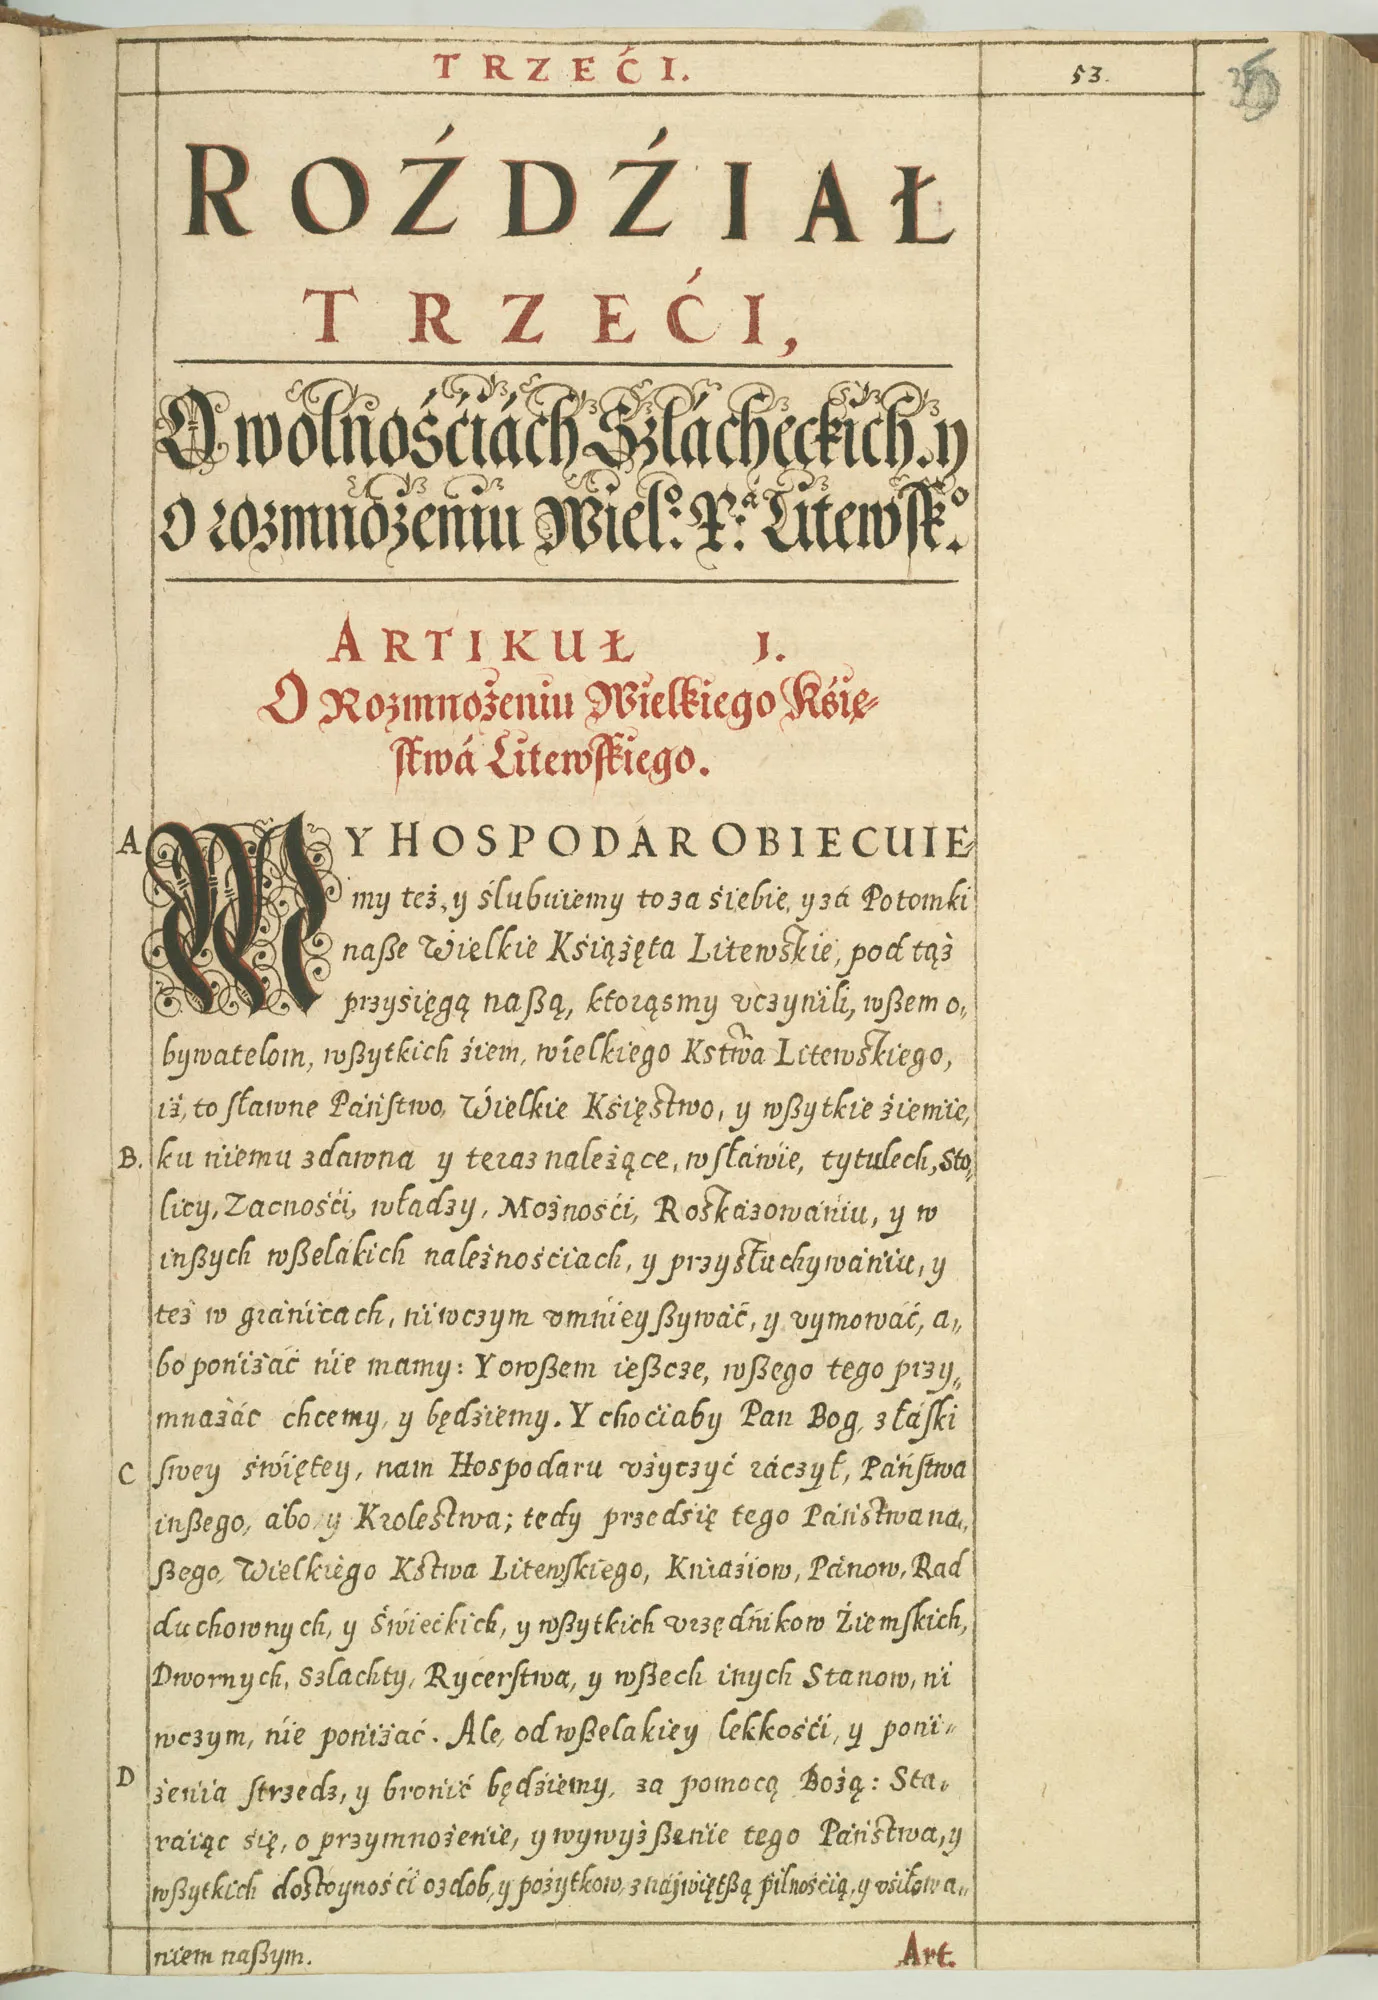 TRZEĆI.
53.
ROŹDŹIAŁ
TRZEĆI,
O wolnośćiách Szlácheckich. y
o rozmnożeniu Wiel⁰: X:á Litewsk⁰.
ARTIKUŁ I.
O Rozmnożeniu Wielkiego Xsię-
stwá Litewskiego.
A
MY HOSPODAR OBIECUIE-
my też, y ślubuiemy to za siebie, y zá Potomki
naße Wielkie Książęta Litewskie, pod tąż
przysięgą naßą, ktorąsmy vczynili, wßem o,,
bywatelom, wßytkich źiem, wielkiego Kstwa Litewskiego,
iż, to sławne Państwo, Wielkie Księstwo, y wßytkie źiemie,
B.
ku niemu zdawna y teraz należące, w sławie, tytulech, Sto,,
licy, Zacnośći, władzy, Możnośći, Roskázowániu, y w
inßych wßelakich należnościach, y przysłuchywániu, y
też w gránicach, niwczym vmnieyßywáć, y vymowáć, a,,
bo poniżáć nie mamy: Y owßem ießcze, wßego tego przy,,
mnażác chcemy, y będziemy. Y chociaby Pan Bog, z łáski
C
swey świętey, nam Hospodaru vżyczyć ráczył, Państwa
inßego, abo y Krolestwa; tedy przedsię tego Państwa na,,
ßego, Wielkiego Kstwa Litewskiego, Kniaziow, Pánow, Rad
duchownych, y Świeckich, y wßytkich vrzędnikow Źiemskich,
Dwornych, Szlachty, Rycerstwa, y wßech inych Stanow, ni
wczym, nie poniżać. Ale, od wßelakiey lekkośći, y poni,,
D
żenia strzedz, y bronić będziemy, za pomocą Bożą: Sta,,
raiąc się, o przymnożenie, y wywyżßenie tego Państwa, y
wßytkich dostoynośći ozdob, y pożytkow, z naywiętßą pilnością, y vsiłowa,,
niem naßym.
Art.